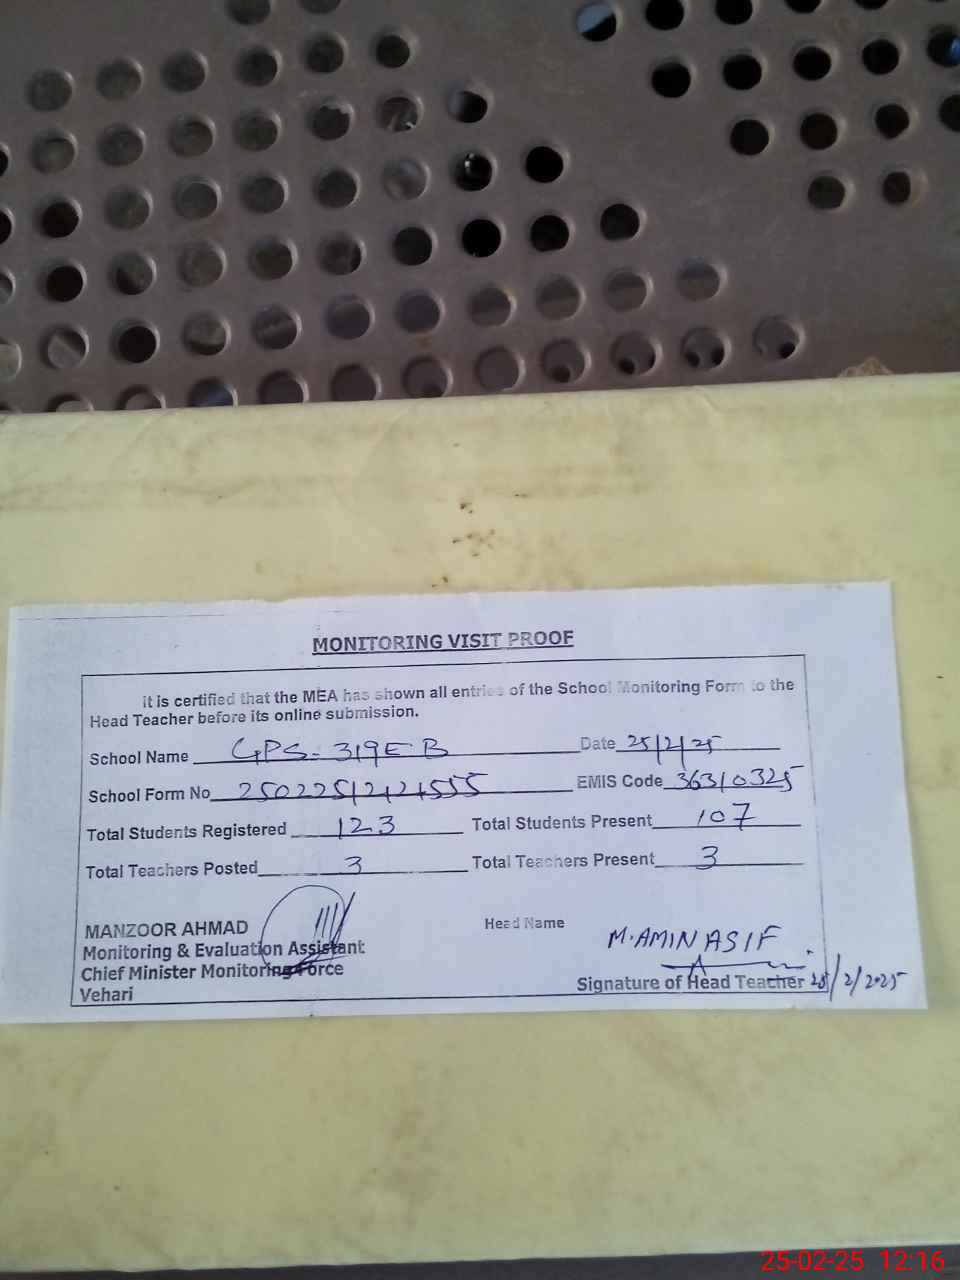 MONITORING VISIT PROOF
it is certified that the MEA has shown all entries of the School Monitoring Form to the
Head Teacher before its online submission.
School Name GPS-319EB Date 25/2/25
School Form No EMIS Code 36310325
Total Students Registered 123 Total Students Present 107
Total Teachers Posted 3 Total Teachers Present 3
MANZOOR AHMAD Head Name
Monitoring & Evaluation Assistent M.AMIN ASIF
Chief Minister Monitoring Force
Vehari Signature of Head Teacher 25/2/2025
25-02-25 12:16